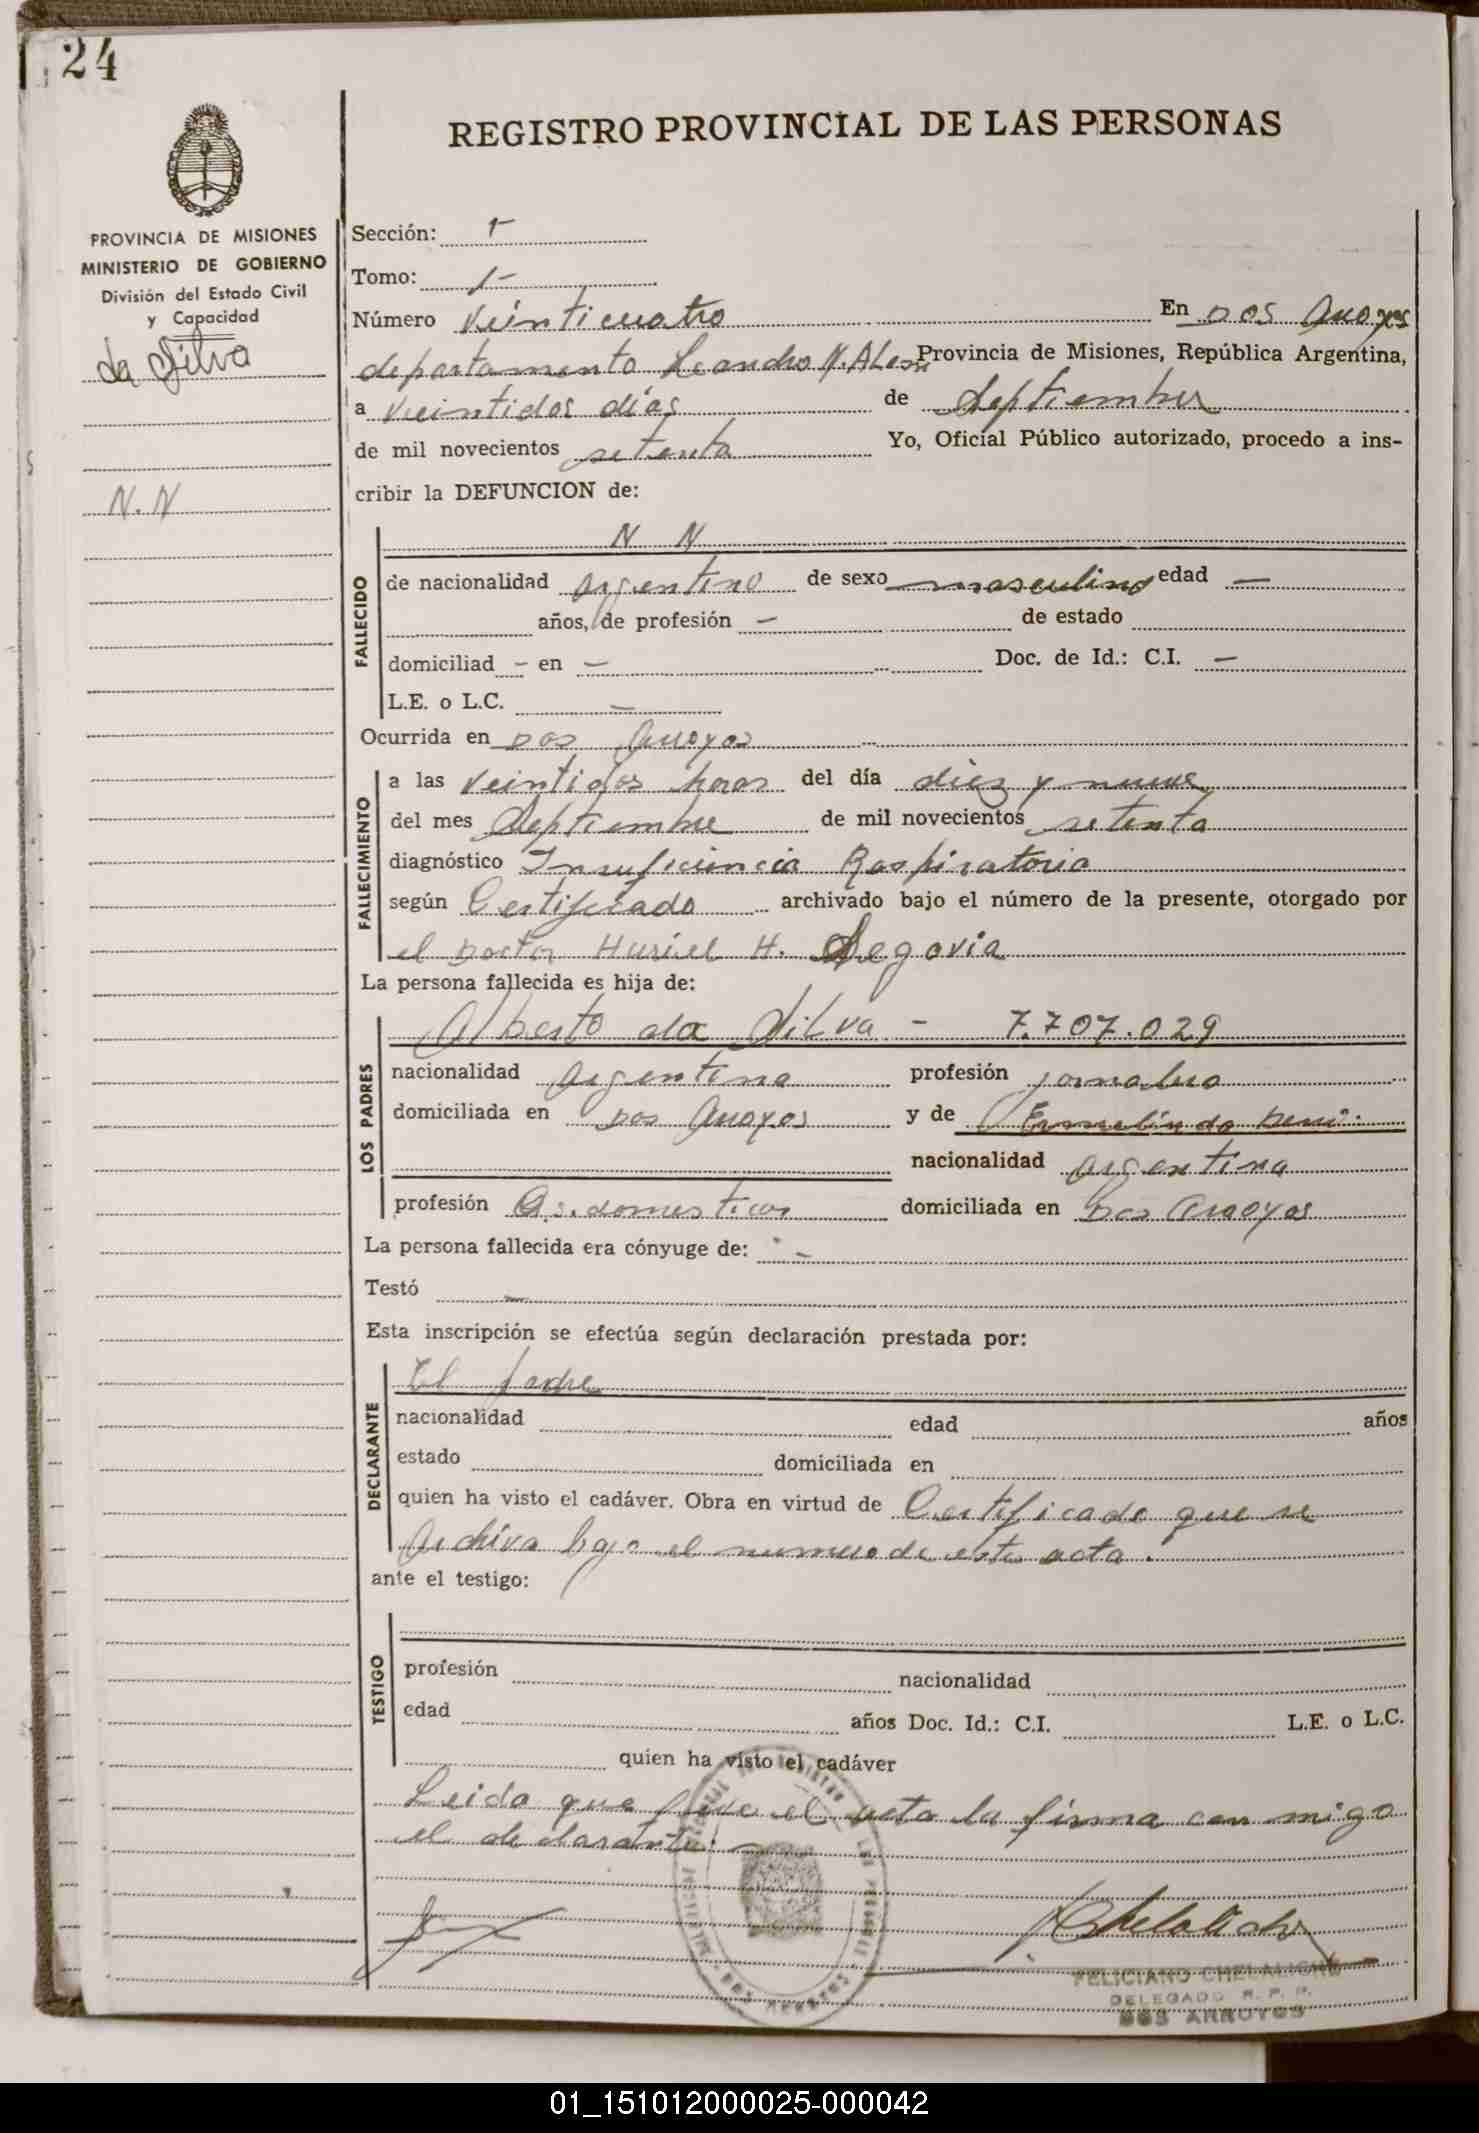 24
REGISTRO PROVINCIAL DE LAS PERSONAS
PROVINCIA DE MISIONES
MINISTERIO DE GOBIERNO
División del Estado Civil
y Capacidad
da Silva
N.N
Sección: 1-
Tomo: 1-
Número veinticuatro En Dos Arroyos
departamento Leandro N. Alem Provincia de Misiones, República Argentina,
a veintidos días de Septiembre
de mil novecientos setenta Yo, Oficial Público autorizado, procedo a ins-
cribir la DEFUNCION de:
N N
FALLECIDO
de nacionalidad argentino de sexo masculino edad —
años, de profesión — de estado
domiciliad - en — Doc. de Id.: C.I. —
L.E. o L.C. —
Ocurrida en Dos Arroyos
FALLECIMIENTO
a las veintidos horas del día diez y nueve
del mes Septiembre de mil novecientos setenta
diagnóstico Insuficiencia Respiratoria
según Certificado archivado bajo el número de la presente, otorgado por
el Doctor Huriel H. Segovia
La persona fallecida es hija de:
LOS PADRES
Alberto da Silva - 7.707.029
nacionalidad argentina profesión jornalero
domiciliada en Dos Arroyos y de Ermelinda
nacionalidad argentina
profesión Q.s. domesticos domiciliada en Dos Arroyos
La persona fallecida era cónyuge de: -
Testó —
Esta inscripción se efectúa según declaración prestada por:
DECLARANTE
El padre
nacionalidad edad años
estado domiciliada en
quien ha visto el cadáver. Obra en virtud de Certificado que se
archiva bajo el numero de esta acta.
ante el testigo:
TESTIGO
profesión nacionalidad
edad años Doc. Id.: C.I. L.E. o L.C.
quien ha visto el cadáver
Leida que fue el acta la firma con migo
el declarante.
FELICIANO CHELALICHE
DELEGADO R. P. P.
DOS ARROYOS
01_151012000025-000042